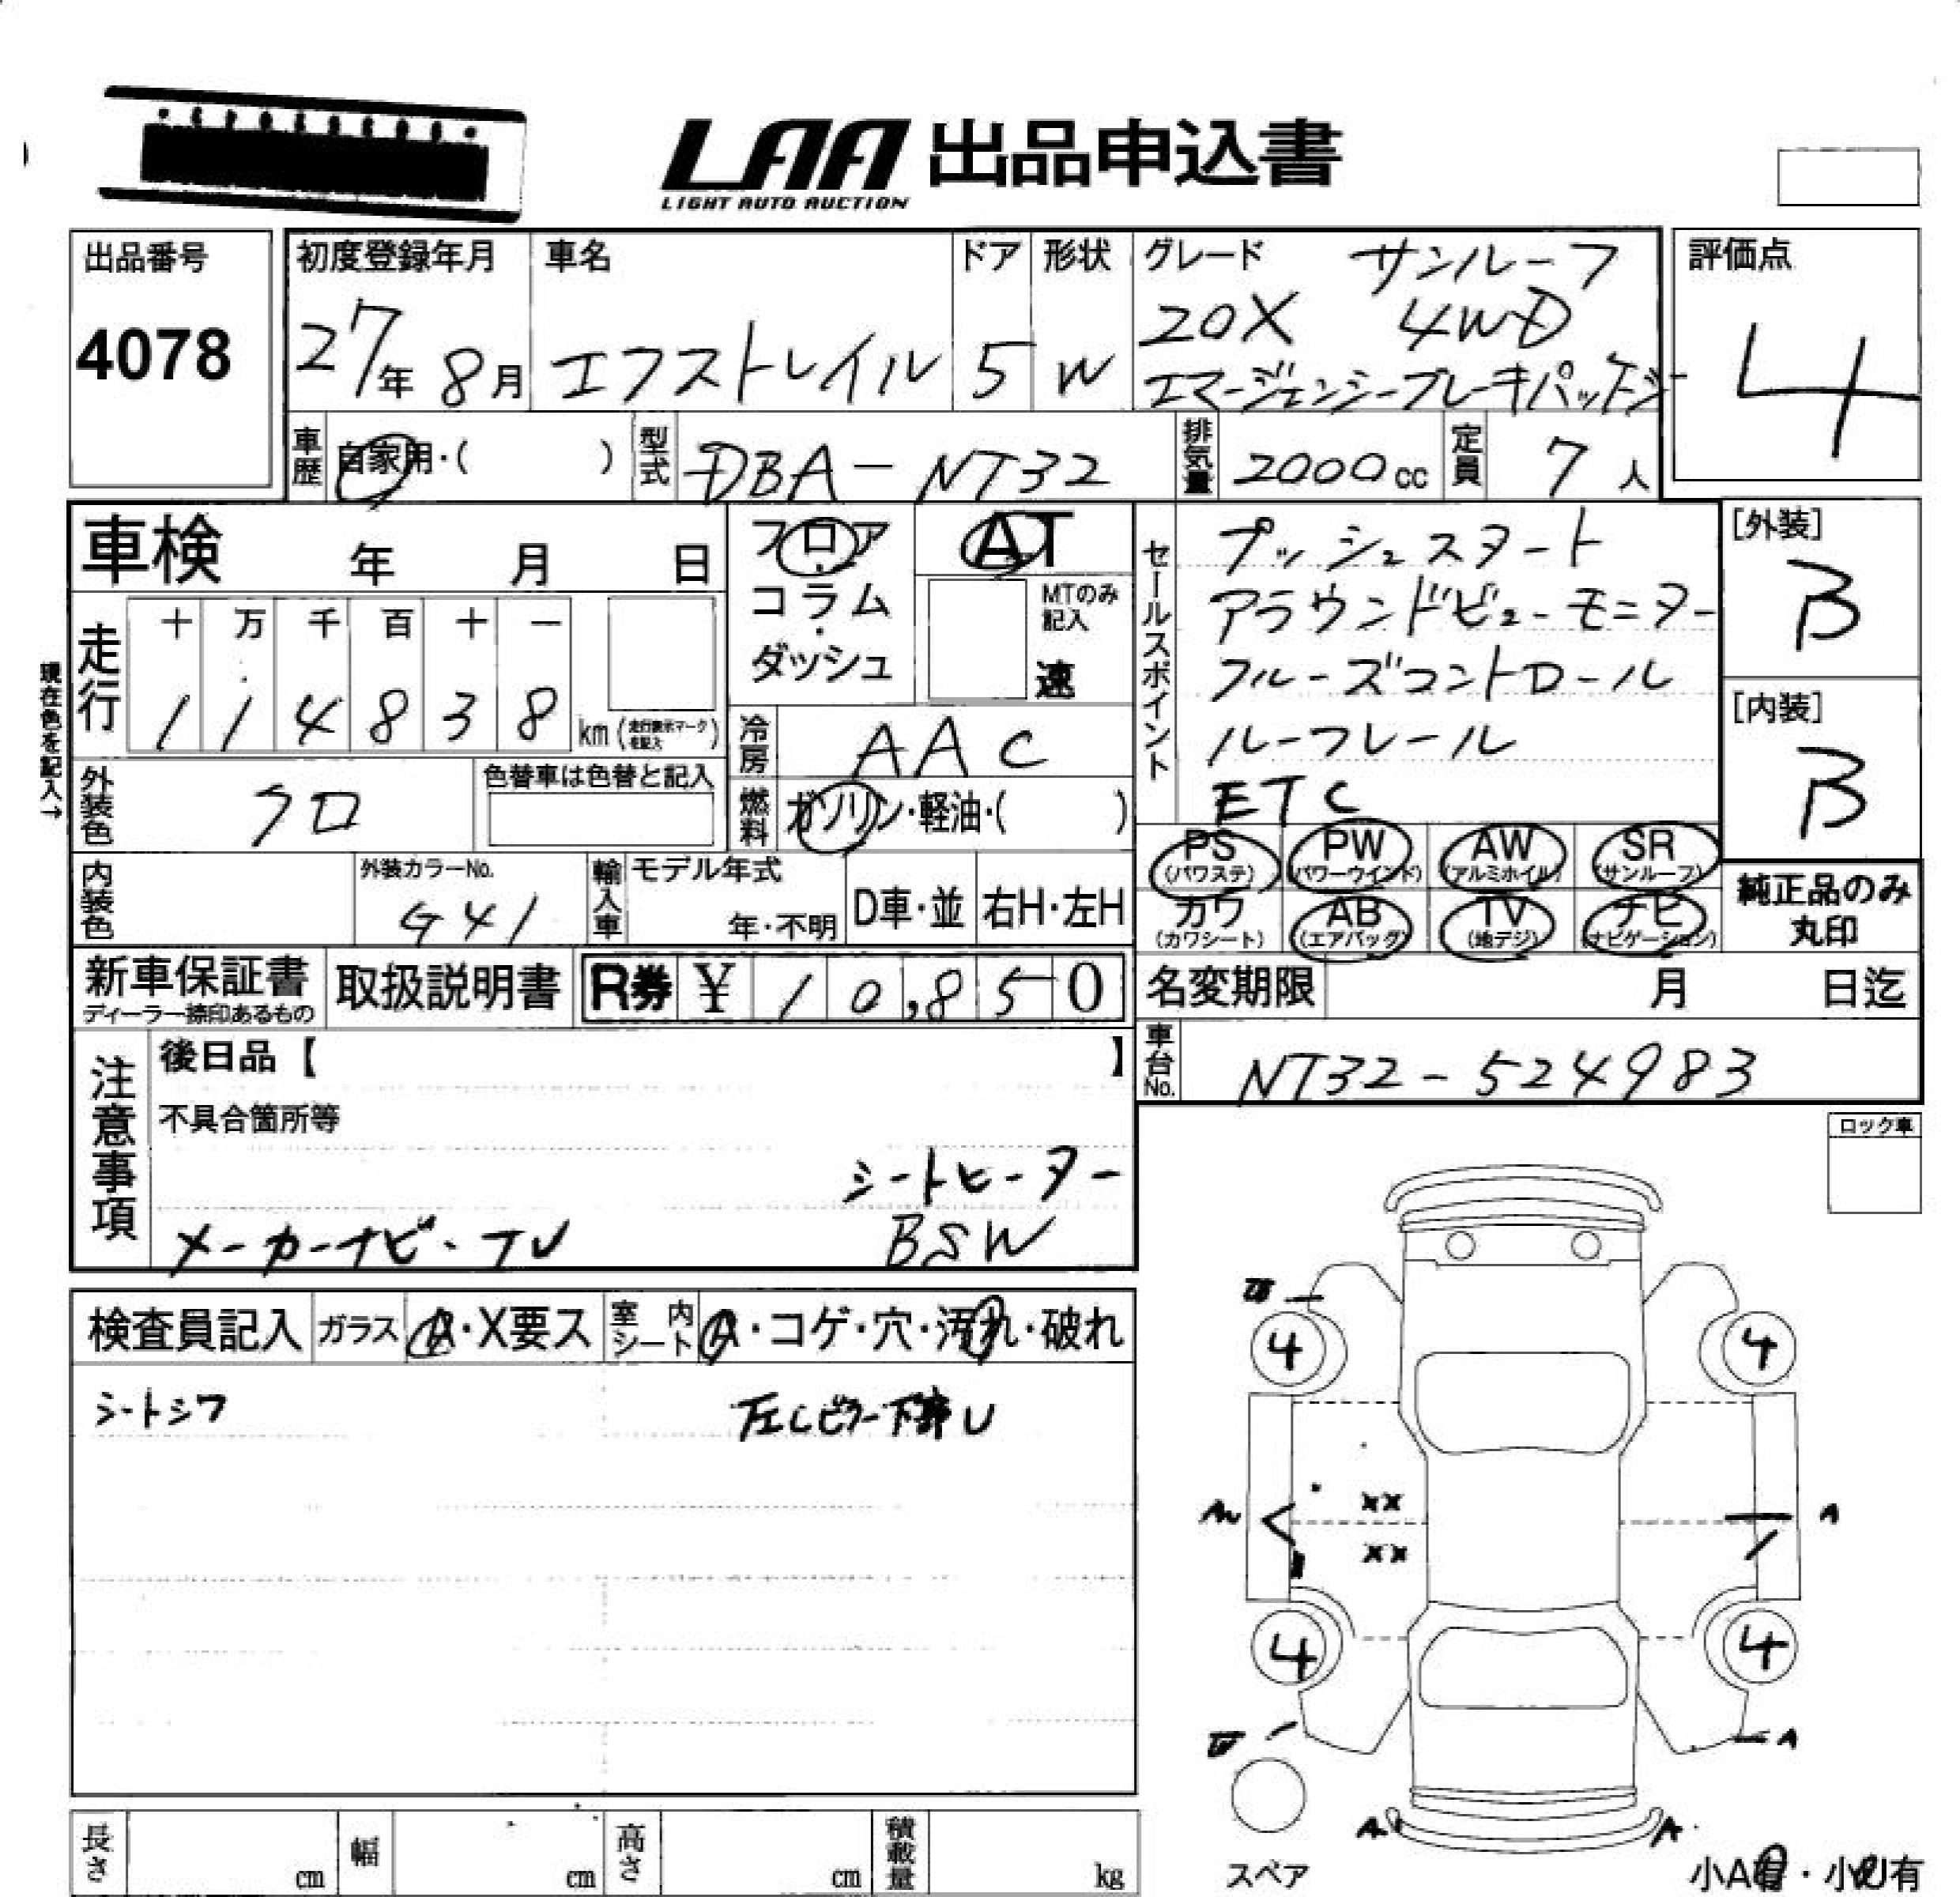 LAA 出品申込書
LIGHT AUTO AUCTION
出品番号
4078
初度登録年月
27年 8月
車名
エクストレイル
ドア
5
形状
W
グレード サンルーフ
20X 4WD
エマージェンシーブレーキパッケージ
評価点
4
車歴
自家用・( )
型式
DBA-NT32
排気量
2000cc
定員
7人
車検 年 月 日
フロア・コラム・ダッシュ
AT
MTのみ記入
速
セールスポイント
プッシュスタート
アラウンドビューモニター
クルーズコントロール
ルーフレール
ETC
[外装]
B
[内装]
B
現在色を記入→
走行
十 万 千 百 十 一
1 1 4 8 3 8 km
冷房
AAC
外装色
クロ
色替車は色替と記入
燃料
ガソリン・軽油・( )
内装色
外装カラーNo.
G41
輸入車
モデル年式
年・不明
D車・並
右H・左H
PS (パワステ)
PW (パワーウインド)
AW (アルミホイル)
SR (サンルーフ)
カワ (カワシート)
AB (エアバッグ)
TV (地デジ)
ナビ (ナビゲーション)
純正品のみ
丸印
新車保証書
ディーラー捺印あるもの
取扱説明書
R券 ¥ 10,850
名変期限 月 日迄
車台No.
NT32-524983
注意事項
後日品【 】
不具合箇所等
シートヒーター
メーカーナビ・TV
BSW
ロック車
検査員記入
ガラス
A・X要ス
室内シート
A・コゲ・穴・汚れ・破れ
シートシワ
左Cピラー下部U
4
4
XX
A
XX
4
4
A
A
A
スペア
小A有・小U有
長さ cm
幅 cm
高さ cm
積載量 kg